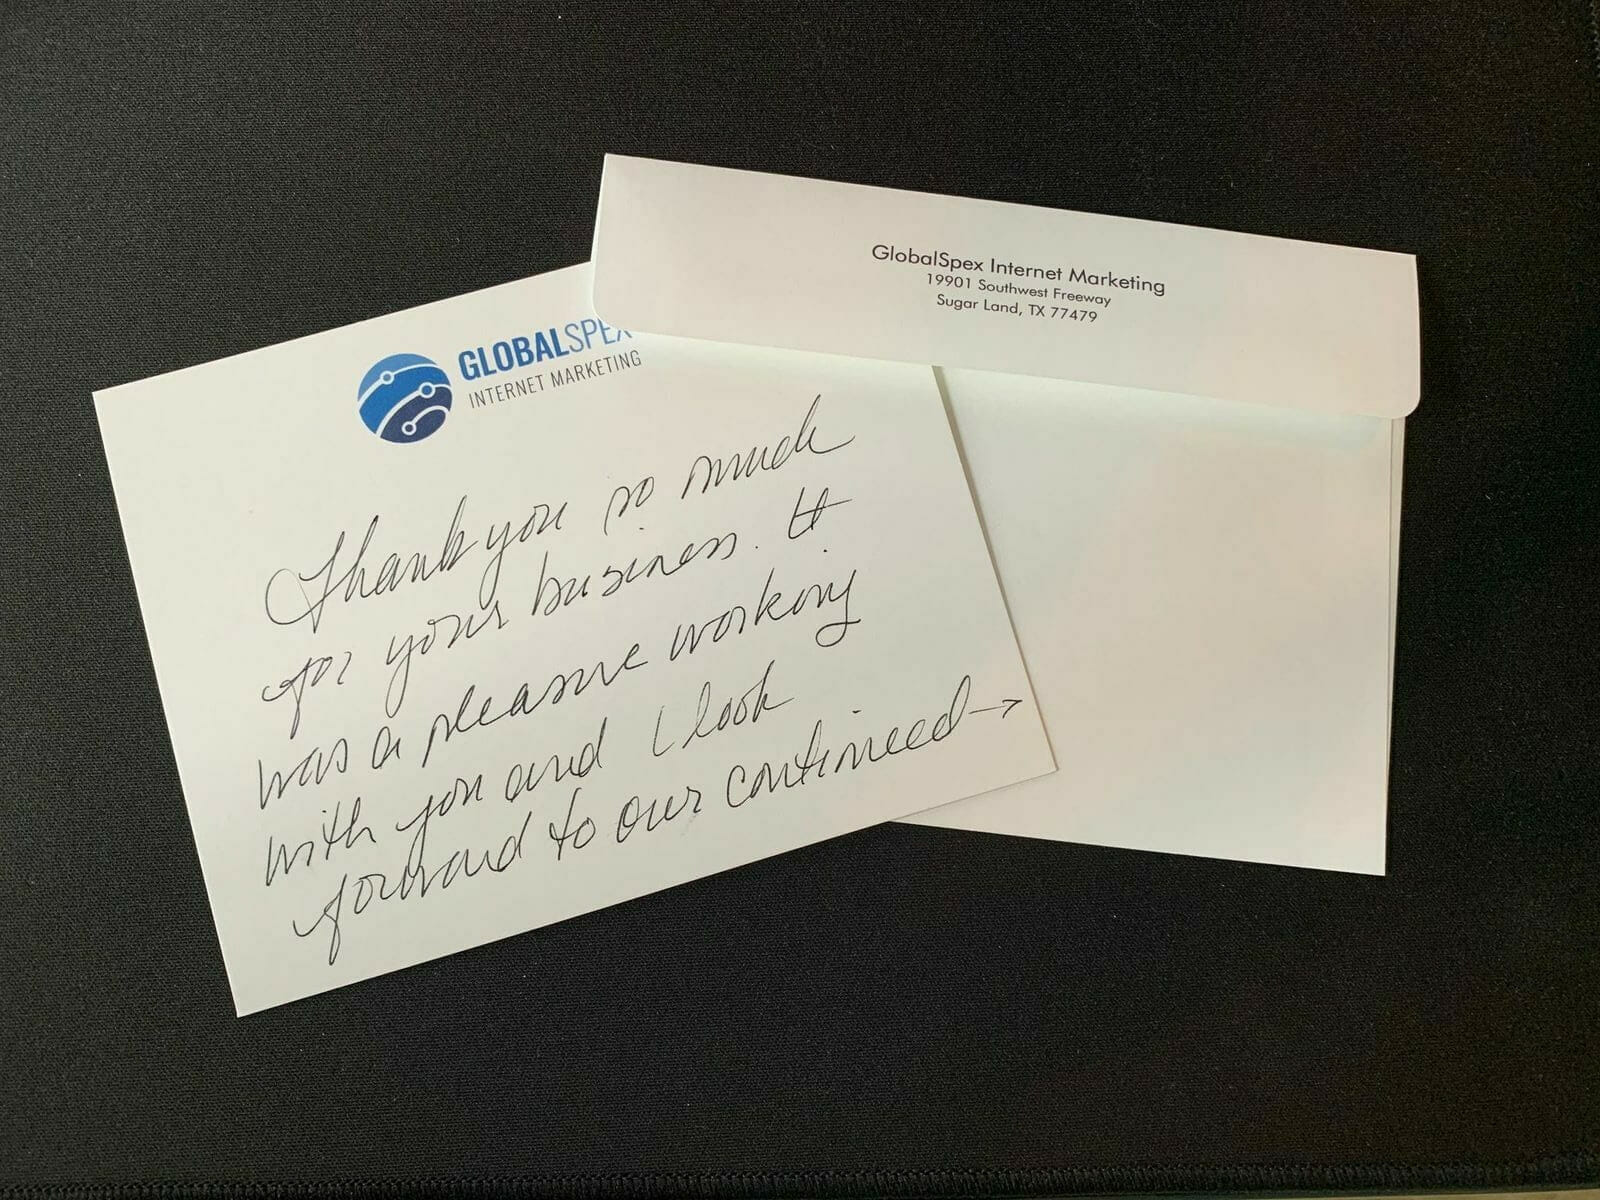 GlobalSpex Internet Marketing
19901 Southwest Freeway
Sugar Land, TX 77479
GLOBALSPEX
INTERNET MARKETING
Thank you so much
for your business. It
was a pleasure working
with you and I look
forward to our continued →